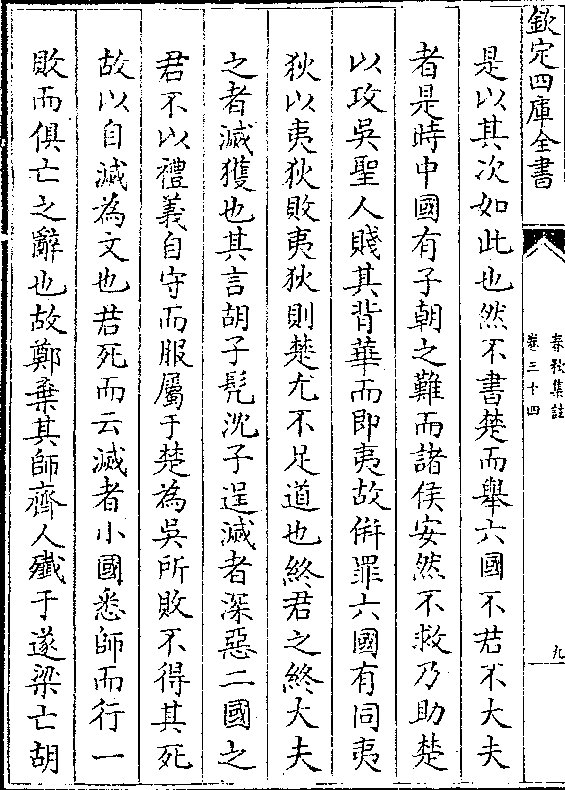 欽定四庫全書
春秋集註
卷三十四
九
是以其次如此也然不書楚而舉六國不君不大夫
者是時中國有子朝之難而諸侯安然不救乃助楚
以攻吳聖人賤其背華而即夷故併罪六國有同夷
狄以夷狄敗夷狄則楚尤不足道也終君之終大夫
之者滅獲也其言胡子髠沈子逞滅者深惡二國之
君不以禮義自守而服屬于楚為吳所敗不得其死
故以自滅為文也君死而云滅者小國悉師而行一
敗而俱亡之辭也故鄭棄其師齊人殲于遂梁亡胡